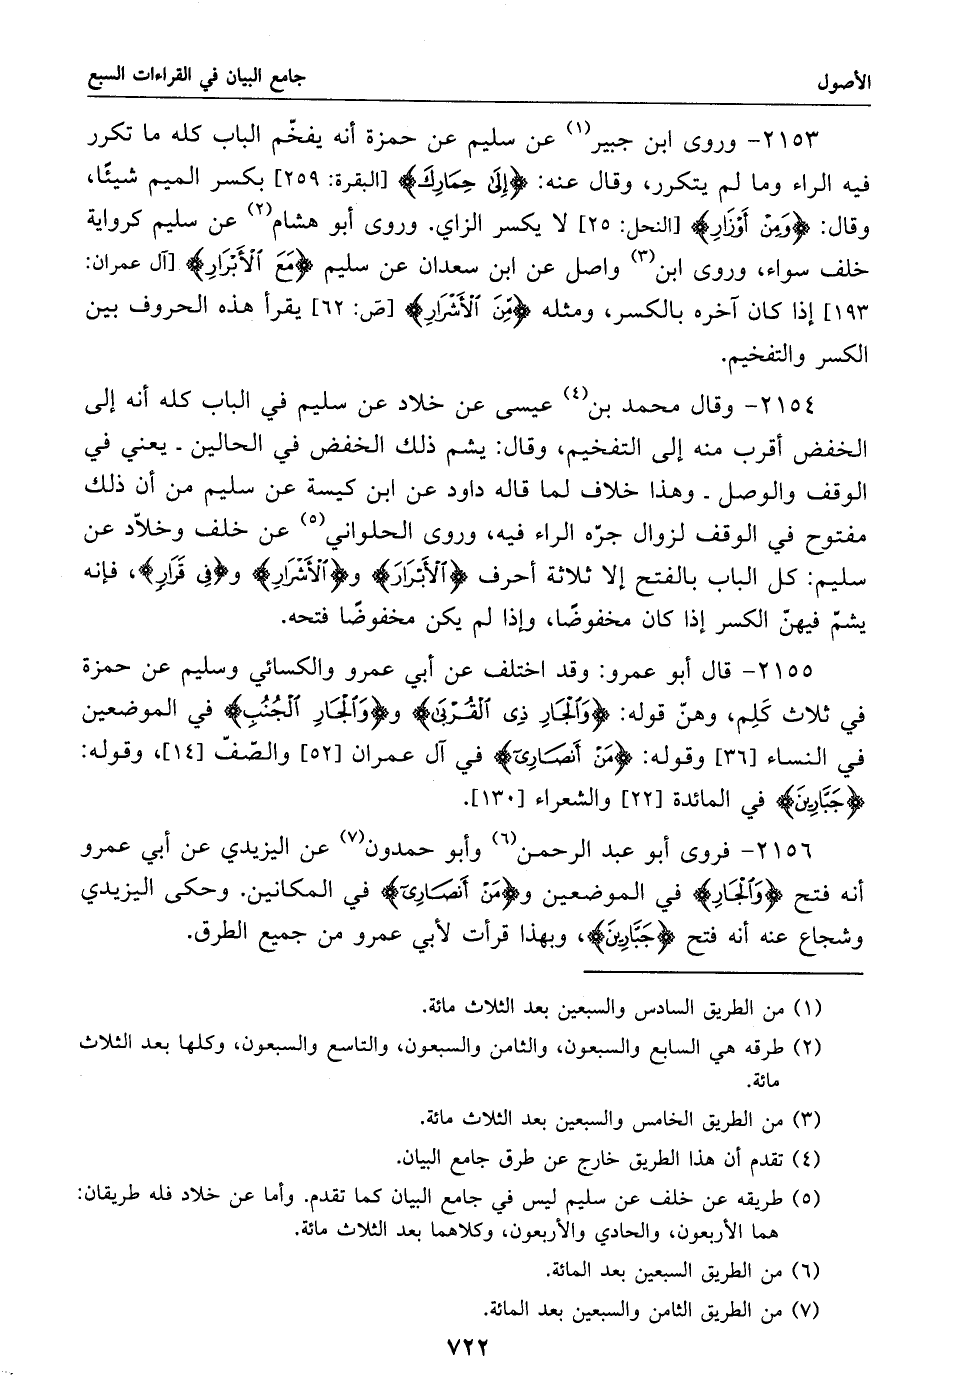 الأصول
جامع البيان في القراءات السبع
٢١٥٣- وروى ابن جبير(١) عن سليم عن حمزة أنه يفخّم الباب كله ما تكرر
فيه الراء وما لم يتكرر، وقال عنه: ﴿إِلَىٰ حِمَارِكَ﴾ [البقرة: ٢٥٩] بكسر الميم شيئًا،
وقال: ﴿وَمِنْ أَوْزَارِ﴾ [النحل: ٢٥] لا يكسر الزاي. وروى أبو هشام(٢) عن سليم كرواية
خلف سواء، وروى ابن(٣) واصل عن ابن سعدان عن سليم ﴿مَعَ ٱلْأَبْرَارِ﴾ [آل عمران:
١٩٣] إذا كان آخره بالكسر، ومثله ﴿مِّنَ ٱلْأَشْرَارِ﴾ [صَ: ٦٢] يقرأ هذه الحروف بين
الكسر والتفخيم.
٢١٥٤- وقال محمد بن(٤) عيسى عن خلاد عن سليم في الباب كله أنه إلى
الخفض أقرب منه إلى التفخيم، وقال: يشم ذلك الخفض في الحالين ـ يعني في
الوقف والوصل ـ وهذا خلاف لما قاله داود عن ابن كيسة عن سليم من أن ذلك
مفتوح في الوقف لزوال جرّه الراء فيه، وروى الحلواني(٥) عن خلف وخلاّد عن
سليم: كل الباب بالفتح إلا ثلاثة أحرف ﴿ٱلْأَبْرَارَ﴾ و﴿ٱلْأَشْرَارِ﴾ و﴿فِى قَرَارٍ﴾، فإنه
يشمّ فيهنّ الكسر إذا كان مخفوضًا، وإذا لم يكن مخفوضًا فتحه.
٢١٥٥- قال أبو عمرو: وقد اختلف عن أبي عمرو والكسائي وسليم عن حمزة
في ثلاث كَلِم، وهنّ قوله: ﴿وَٱلْجَارِ ذِى ٱلْقُرْبَىٰ﴾ و﴿وَٱلْجَارِ ٱلْجُنُبِ﴾ في الموضعين
في النساء [٣٦] وقوله: ﴿مَنْ أَنصَارِىٓ﴾ في آل عمران [٥٢] والصّفّ [١٤]، وقوله:
﴿جَبَّارِينَ﴾ في المائدة [٢٢] والشعراء [١٣٠].
٢١٥٦- فروى أبو عبد الرحمن(٦) وأبو حمدون(٧) عن اليزيدي عن أبي عمرو
أنه فتح ﴿وَٱلْجَارِ﴾ في الموضعين و﴿مَنْ أَنصَارِىٓ﴾ في المكانين. وحكى اليزيدي
وشجاع عنه أنه فتح ﴿جَبَّارِينَ﴾، وبهذا قرأت لأبي عمرو من جميع الطرق.
(١) من الطريق السادس والسبعين بعد الثلاث مائة.
(٢) طرقه هي السابع والسبعون، والثامن والسبعون، والتاسع والسبعون، وكلها بعد الثلاث
مائة.
(٣) من الطريق الخامس والسبعين بعد الثلاث مائة.
(٤) تقدم أن هذا الطريق خارج عن طرق جامع البيان.
(٥) طريقه عن خلف عن سليم ليس في جامع البيان كما تقدم. وأما عن خلاد فله طريقان:
هما الأربعون، والحادي والأربعون، وكلاهما بعد الثلاث مائة.
(٦) من الطريق السبعين بعد المائة.
(٧) من الطريق الثامن والسبعين بعد المائة.
٧٢٢